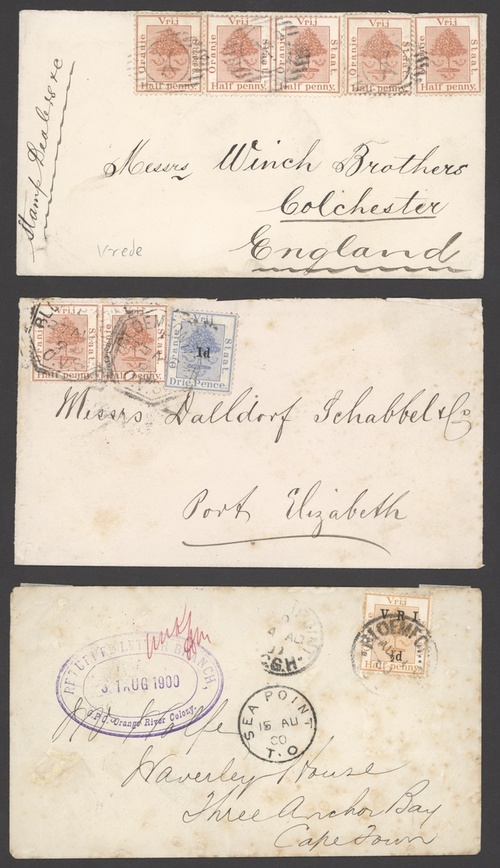 Vrij Vrij Vrij Vrij Vrij
Oranje Staat Oranje Staat Oranje Staat Oranje Staat Oranje Staat
Half penny. Half penny. Half penny. Half penny. Half penny.
Stamp Dealers &c
Messrs Winch Brothers
Colchester
England
Vrede
Vrij Vrij Vrij
Oranje Staat Oranje Staat Oranje Staat
1d
Half penny. Half penny. Drie Pence.
Messrs Dalldorf Schabbel & Co
Port Elizabeth
Vrij
V.R.I.
BLOEMFO
½d
Half penny.
RETURNED LETTER BRANCH,
31 AUG 1900
Orange River Colony.
AU
C.G.H.
SEA POINT
15 AU
00
T.O
Waverley House
Three Anchor Bay
Cape Town